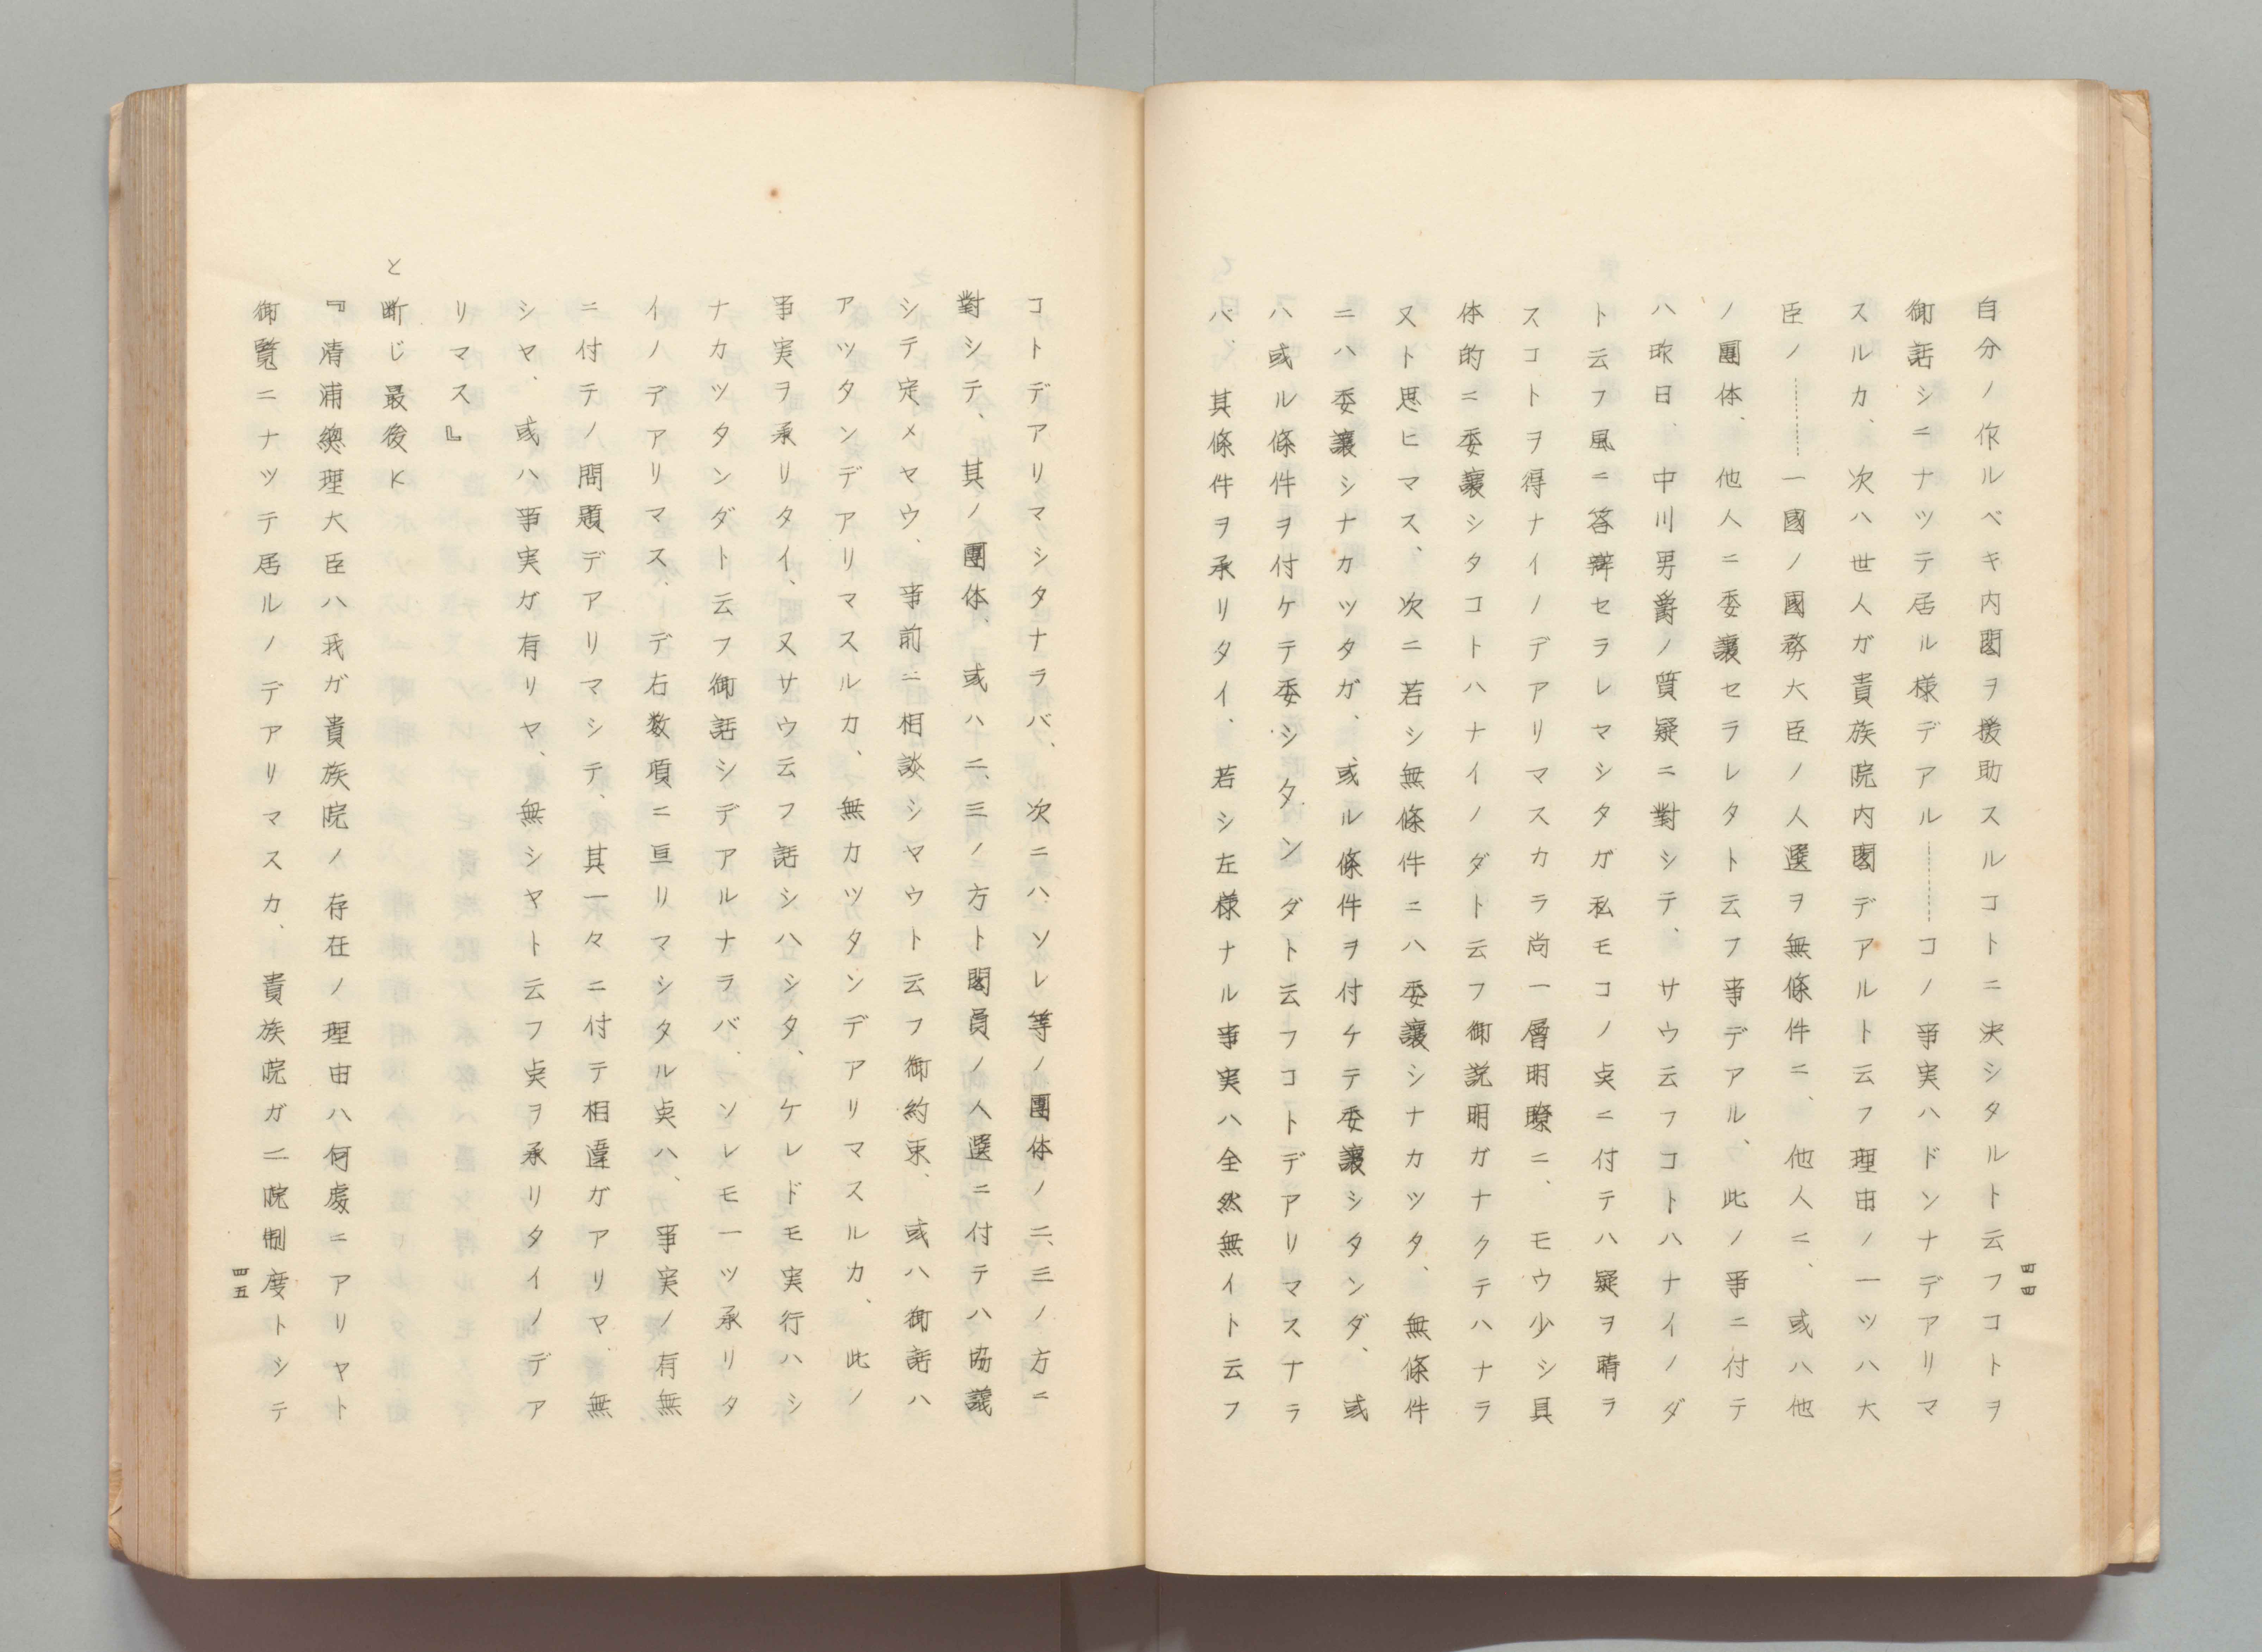 自分ノ作ルベキ内閣ヲ援助スルコトニ決シタルト云フコトヲ
御話シニナツテ居ル様デアル………コノ事実ハドンナデアリマ
スルカ、次ハ世人ガ貴族院内閣デアルト云フ理由ノ一ツハ大
臣ノ………一國ノ國務大臣ノ人選ヲ無條件ニ、他人ニ、或ハ他
ノ團体、他人ニ委譲セラレタト云フ事デアル、此ノ事ニ付テ
ハ昨日、中川男爵ノ質疑ニ對シテ、サウ云フコトハナイノダ
ト云フ風ニ答辯セラレマシタガ私モコノ点ニ付テハ疑ヲ晴ラ
スコトヲ得ナイノデアリマスカラ尚一層明瞭ニ、モウ少シ具
体的ニ委譲シタコトハナイノダト云フ御説明ガナクテハナラ
又ト思ヒマス、次ニ若シ無條件ニハ委譲シナカツタ、無條件
ニハ委譲シナカツタガ、或ル條件ヲ付ケテ委譲シタンダ、或
ハ或ル條件ヲ付ケテ委シタンダト云フコトデアリマスナラ
バ、其條件ヲ承リタイ、若シ左様ナル事実ハ全然無イト云フ
四四
コトデアリマシタナラバ、次ニハソレ等ノ團体ノ二、三ノ方ニ
對シテ、其ノ團体、或ハ二、三ノ方ト閣員ノ人選ニ付テハ協議
シテ定メヤウ、事前ニ相談シヤウト云フ御約束、或ハ御話ハ
アツタンデアリマスルカ、無カツタンデアリマスルカ、此ノ
事実ヲ承リタイ、又サウ云フ話シハシタ、ケレドモ実行ハシ
ナカツタンダト云フ御話シデアルナラバ、ソレモ一ツ承リタ
イノデアリマス、デ右数項ニ亘リマシタル点ハ、事実ノ有無
ニ付テノ問題デアリマシテ、其一々ニ付テ相違ガアリヤ、無
シヤ、或ハ事実ガ有リヤ、無シヤト云フ点ヲ承リタイノデア
リマス』
と断じ最後に
『清浦總理大臣ハ我ガ貴族院ノ存在ノ理由ハ何處ニアリヤト
御覧ニナツテ居ルノデアリマスカ、貴族院ガ二院制度トシテ
四五